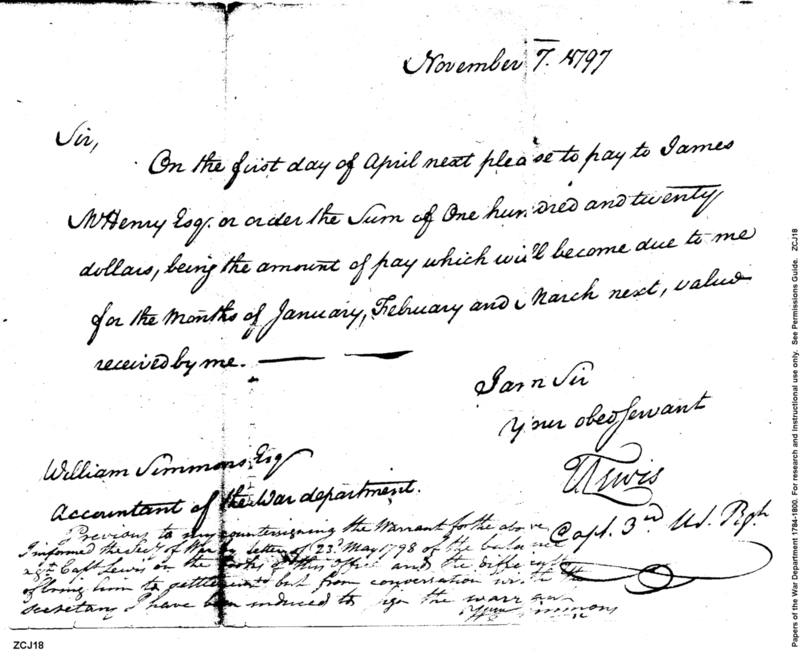 November 7. 1797
Sir,
On the first day of April next please to pay to James
McHenry Esq. or order the Sum of One hundred and twenty
dollars, being the amount of pay which will become due to me
for the Months of January, February and March next, value
received by me.
I am Sir
Your obed Servant
William Simmons, Esq
Accountant of the War department.
Capt. 3rd US. Regt
Previous to my countersigning the Warrant for the above
I informed the Secy of War by letter of 23d May 1798 of the balance
agst Capt Lewis on the books of this office and the difficulty
of bring him to settlement but from conversation with the
Secretary I have been induced to sign the warrant
Wm Simmons
ZCJ18
Papers of the War Department 1784-1800. For research and instructional use only. See Permissions Guide. ZCJ18